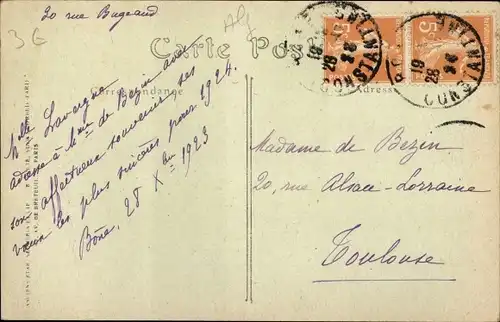 3G
20 rue Bugeaud
Alg
Carte Pos
Correspondance
Adresse
CONSTANTINE
19
28
CONSTANTINE
19
28
5
Melle Lavergne
adresse à Mme de Bezin avec
son affectueux souvenir ses
vœux les plus sincères pour 1924.
Bône, 28 Xbre 1923
Madame de Bezin
20, rue Alsace-Lorraine
Toulouse